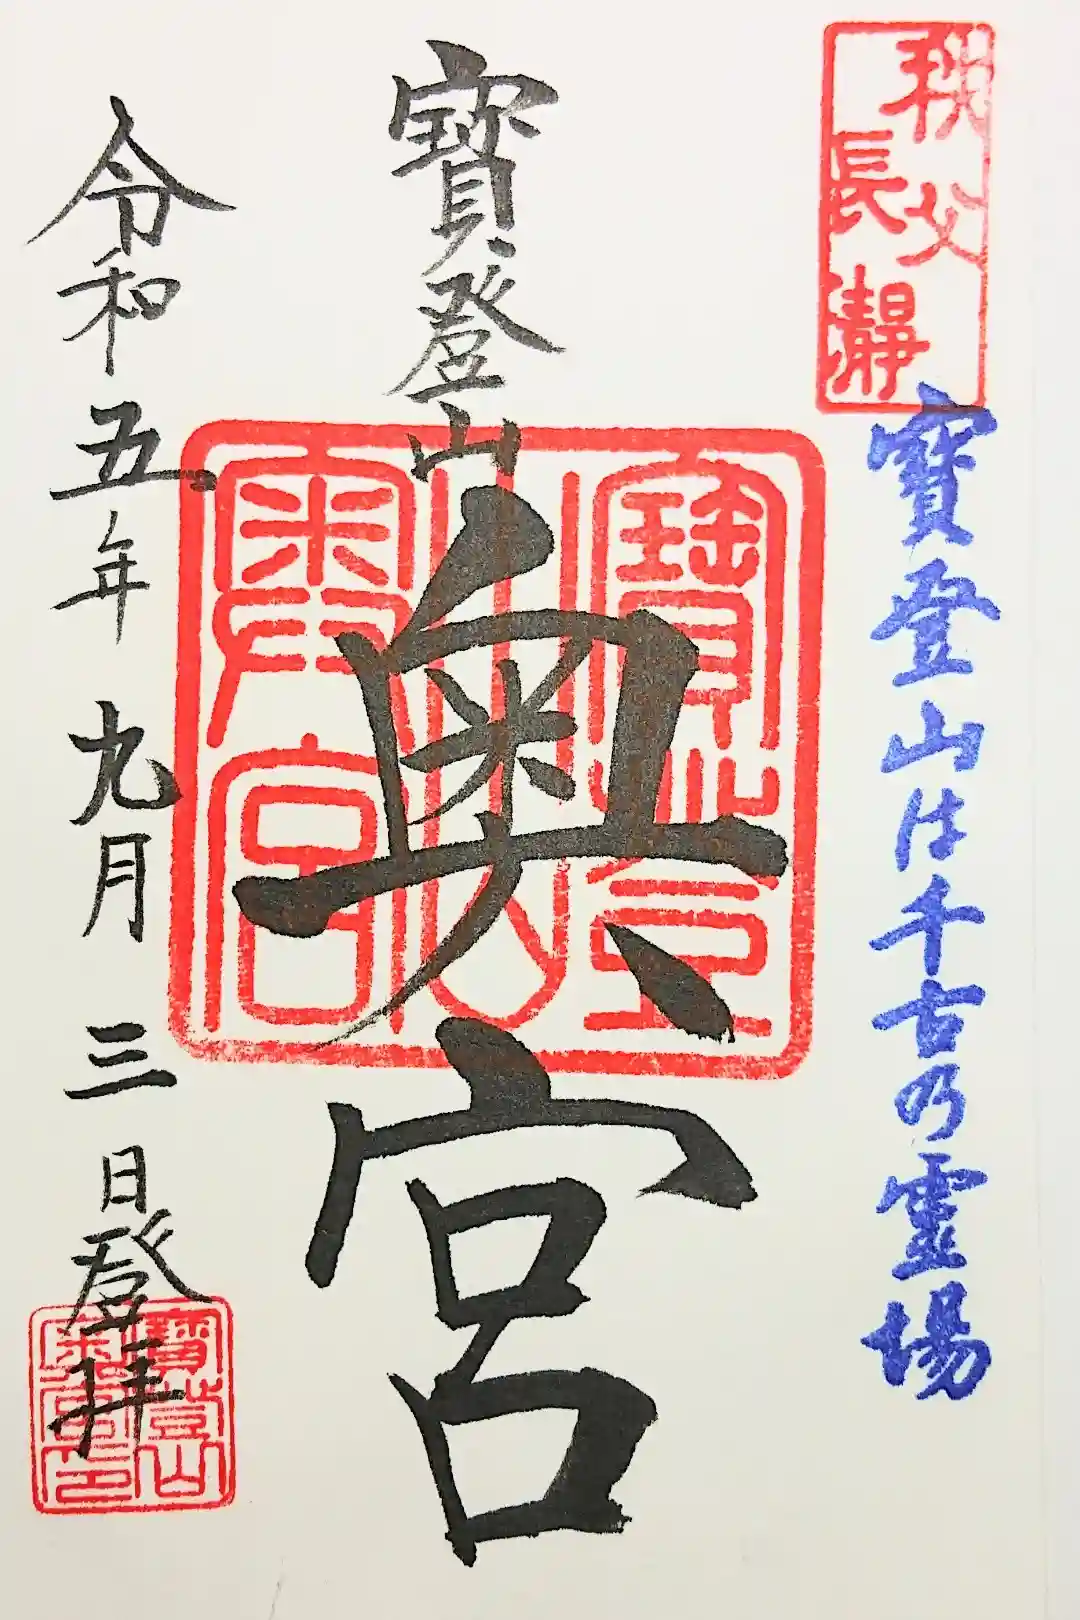 秩父
長瀞
寶登山は千古乃霊場
寶登山
奥宮
寶登山
奥宮
令和五年九月三日登拝
寶登山
奥宮印